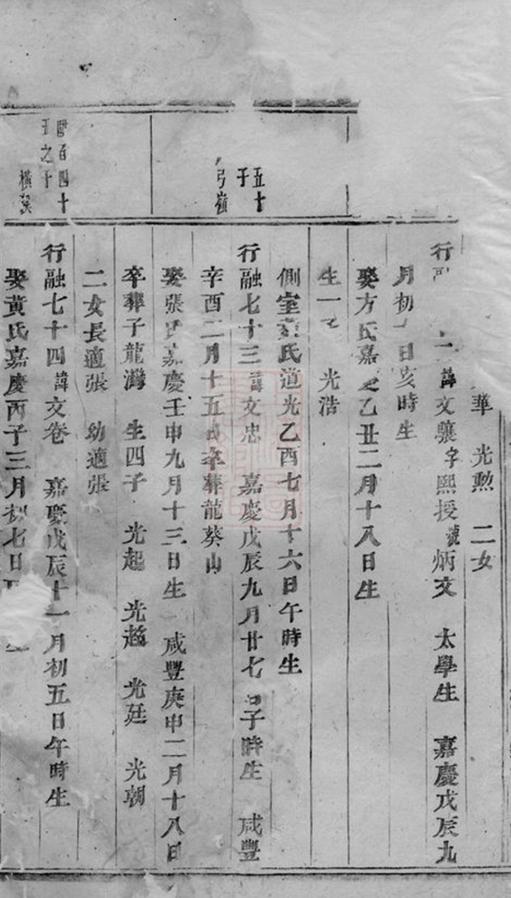 華 光勲 二女
行融 二 諱文驤字熙授號炳文 太學生 嘉慶戊辰九
月初 日亥時生
娶方氏嘉慶乙丑二月十八日生
生一子 光浩
側室 氏道光乙酉七月十六日午時生
五十
子
弓嶺
行融七十三諱文忠 嘉慶戊辰九月廿七日子時生 咸豐
辛酉二月十五日卒葬龍葵山
娶張氏嘉慶壬申九月十三日生 咸豐庚申二月十八日
卒葬子龍灣 生四子 光起 光趨 光廷 光朝
二女長適張 幼適張
四百四十
五之十
橫
行融七十四諱文卷 嘉慶戊辰十一月初五日午時生
娶黃氏嘉慶丙子三月初七日 生